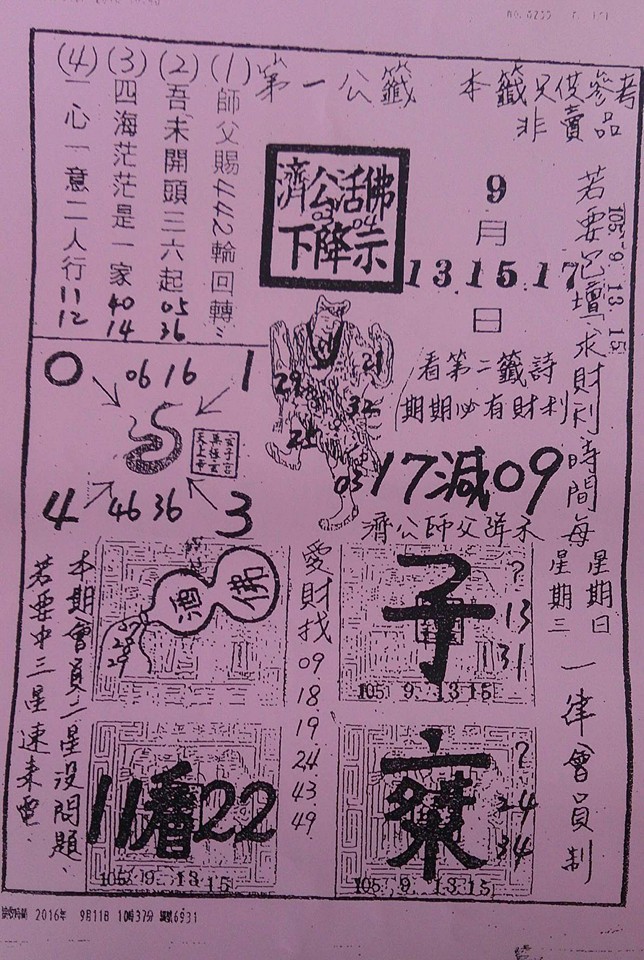 NO. 6255 P. 1/1
第一公籤
本籤只供參考
非賣品
(1)師父賜4442輪回轉
(2)吾未開頭三六起 05 36
(3)四海茫茫是一家 40 14
(4)一心一意二人行 11 12
濟公活佛
03 04
下降示
9月13.15.17日
105 9 13 15
若要包壇求財利時間每
星期日
星期三
一律會員制
看第二籤詩
期期必有財利
0 06 16 1
4 46 36 3
21
29
32
25
03
17減09
濟公師父詳示
佛
酒
27
28
29
愛財找
09
18
19
24
43
49
子
?
13
31
105 9. 13 15
11 22
105 9. 13 15
?
24
34
105 9. 13 15
本期會員二星沒問題、
若要中三星速來電、
2016年 9月11日 10時37分 6931